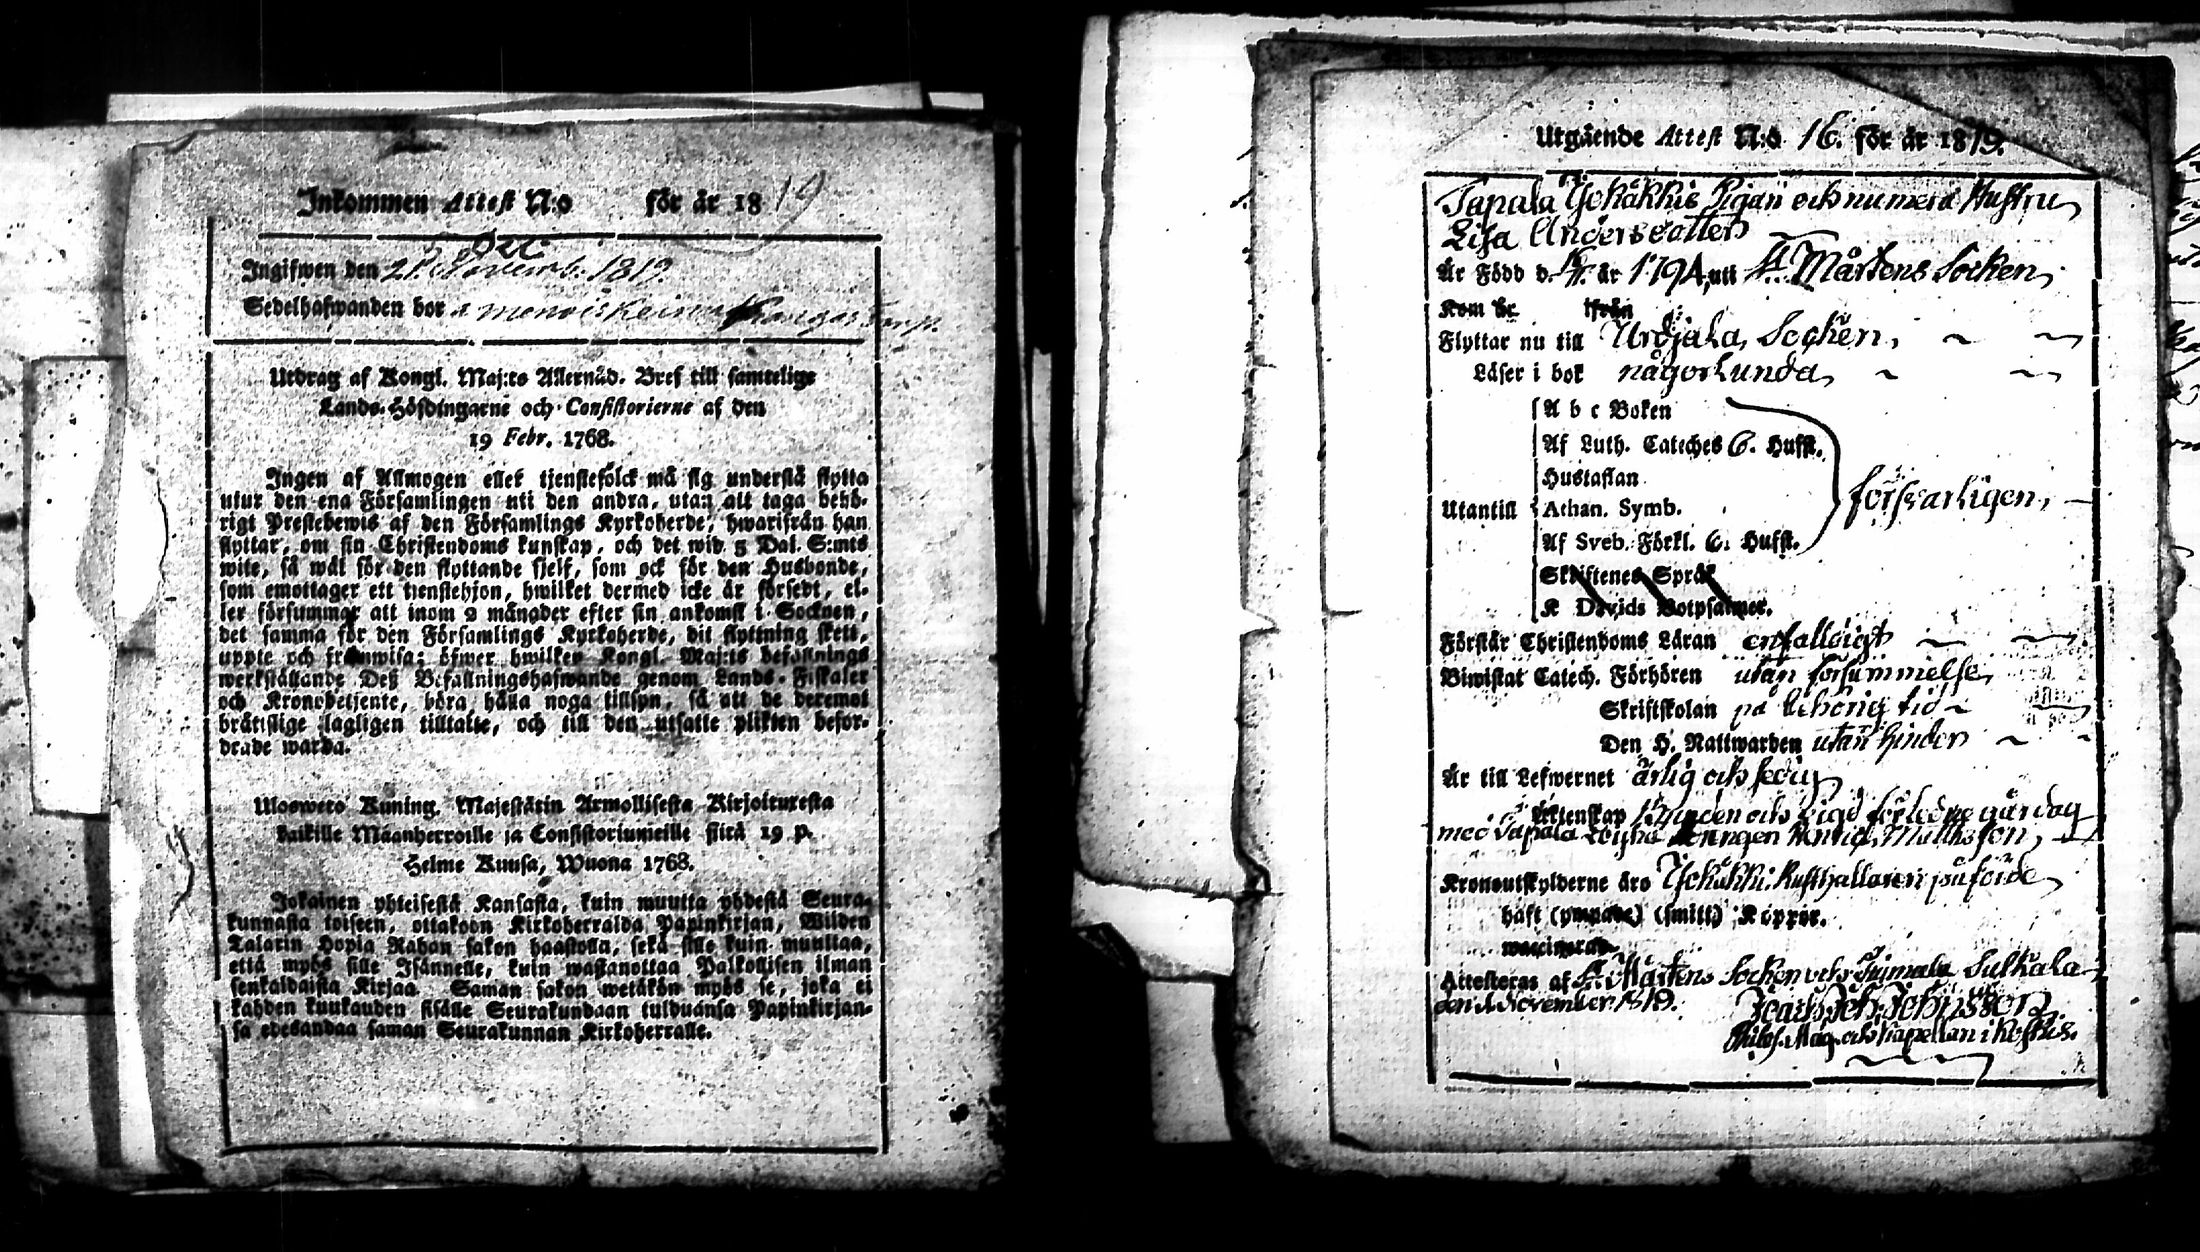 Inkommen Attest N:o för år 1819
Dec
Ingifwen den 21 Novemb. 1819.
Sedelhafwanden bor
Utdrag af Kongl. Maj:ts Allernåd. Bref till samtelige
Lands-Höfdingarne och Consistorierne af den
19 Febr. 1768.
Ingen af Allmogen eller tjenstefölck må sig understå flytta
utur den ena Församlingen uti den andra, utan att taga behö-
rigt Prestebewis af den Församlings Kyrkoherde, hwarifrån han
flyttar, om sin Christendoms kunskap, och det wid 5 Dal. S:mts
wite, så wäl för den flyttande sjelf, som ock för den Husbonde,
som emottager ett tienstehjon, hwilket dermed icke är försedt, el-
ler försummar att inom 2 månader efter sin ankomst i Socknen,
det samma för den Församlings Kyrkoherde, dit flyttning skett,
uppte och framwisa; öfwer hwilket Kongl. Maj:ts befallnings
werkställande Deß Befallningshafwande genom Lands-Fiskaler
och Kronobetjente, böra hålla noga tillsyn, så att de deremot
bråttslige lagligen tilltalte, och till den utsatte plikten befor-
drade warda.
Ulosweto Kuning. Majestätin Armollisesta Kirjoituxesta
kaikille Maanherroille ja Consistoriumeille siitä 19 p.
Helme Kuusa, Wuona 1768.
Jokainen yhteisestä Kansasta, kuin muutta yhdestä Seura-
kunnasta toiseen, ottakoon Kirkoherralda Papinkirjan, Wiiden
Talarin Hopia Rahan sakon haastolla, sekä sille kuin muuttaa,
että myös sille Isännelle, kuin wastanottaa Palkollisen ilman
senkaldaista Kirjaa. Saman sakon wetäkön myös se, joka ei
kahden kuukauden sisälle Seurakundaan tulduansa Papinkirjan-
sa edesandaa saman Seurakunnan Kirkoherralle.
Utgående Attest N:o 16. för år 1819.
Tapala Yskäkkis Pigan och numera Hustru
Lisa Andersdotter
Är Född d. år 1794, uti St. Mårtens Socken,
Kom år ifrån
Flyttar nu till Urdjala Socken,
Läser i bok någorlunda,
A b c Boken
Af Luth. Cateches 6. Hufst.
Hustaflan
Utantill Athan. Symb. försvarligen,
Af Sveb. Förkl. 6. Hufst.
Skriftenes Språk
K Davids Botpsalmer.
Förstår Christendoms Läran enfalldigt
Biwistat Catech. Förhören utan försummelse,
Skriftskolan på behörig tid
Den H. Nattwarden utan hinder
Är till Lefwernet ärlig och sedig
Äktenskap och förledne går dag
med Tapala Matthsson,
Kronoutskylderne äro Yskäkki Rusthållaren påförde,
haft (ympade) (smitt) Koppor.
waccinerad.
Attesteras af St. Mårtens Socken och Suikala
den 1 November 1819.
Philos. Mag. och Kapellan i Koskis.